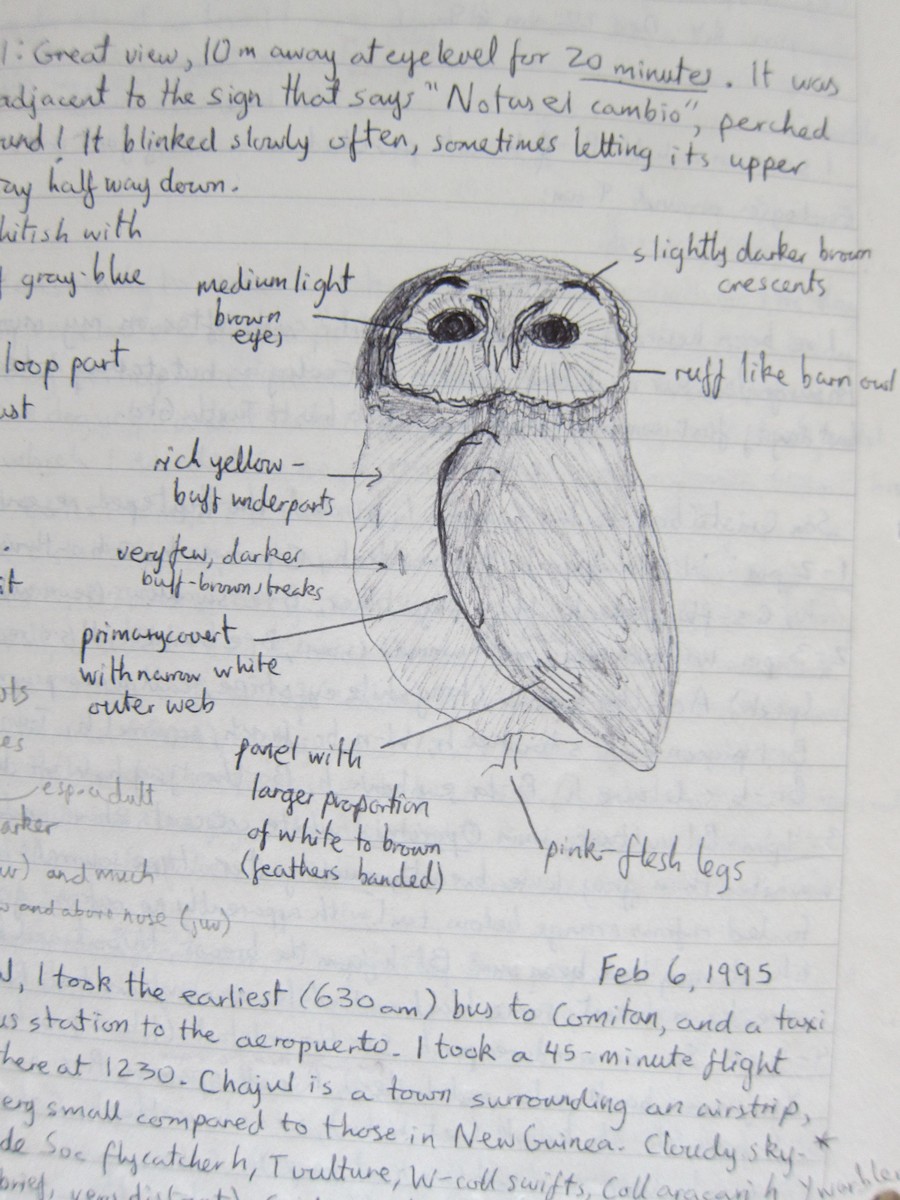 1: Great view, 10 m away at eye level for 20 minutes. It was
adjacent to the sign that says "Notas el cambio", perched
und! It blinked slowly often, sometimes letting its upper
ay half way down.
hitish with
gray-blue
medium light
brown
eyes
slightly darker brown
crescents
loop part
ust
ruff like barn owl
rich yellow-
buff underparts
very few, darker
buff-brown streaks
it
primary covert
with narrow white
outer web
ots
es
panel with
larger proportion
of white to brown
(feathers banded)
esp. adult
arker
uv) and much
and above nose (juv)
pink-flesh legs
Feb 6, 1995
I took the earliest (630 am) bus to Comitan, and a taxi
us station to the aeropuerto. I took a 45-minute flight
here at 1230. Chajul is a town surrounding an airstrip,
ery small compared to those in New Guinea. Cloudy sky-*
de Soc flycatcher h, T vulture, W-coll swifts, Coll aracari h
brief, very distant)